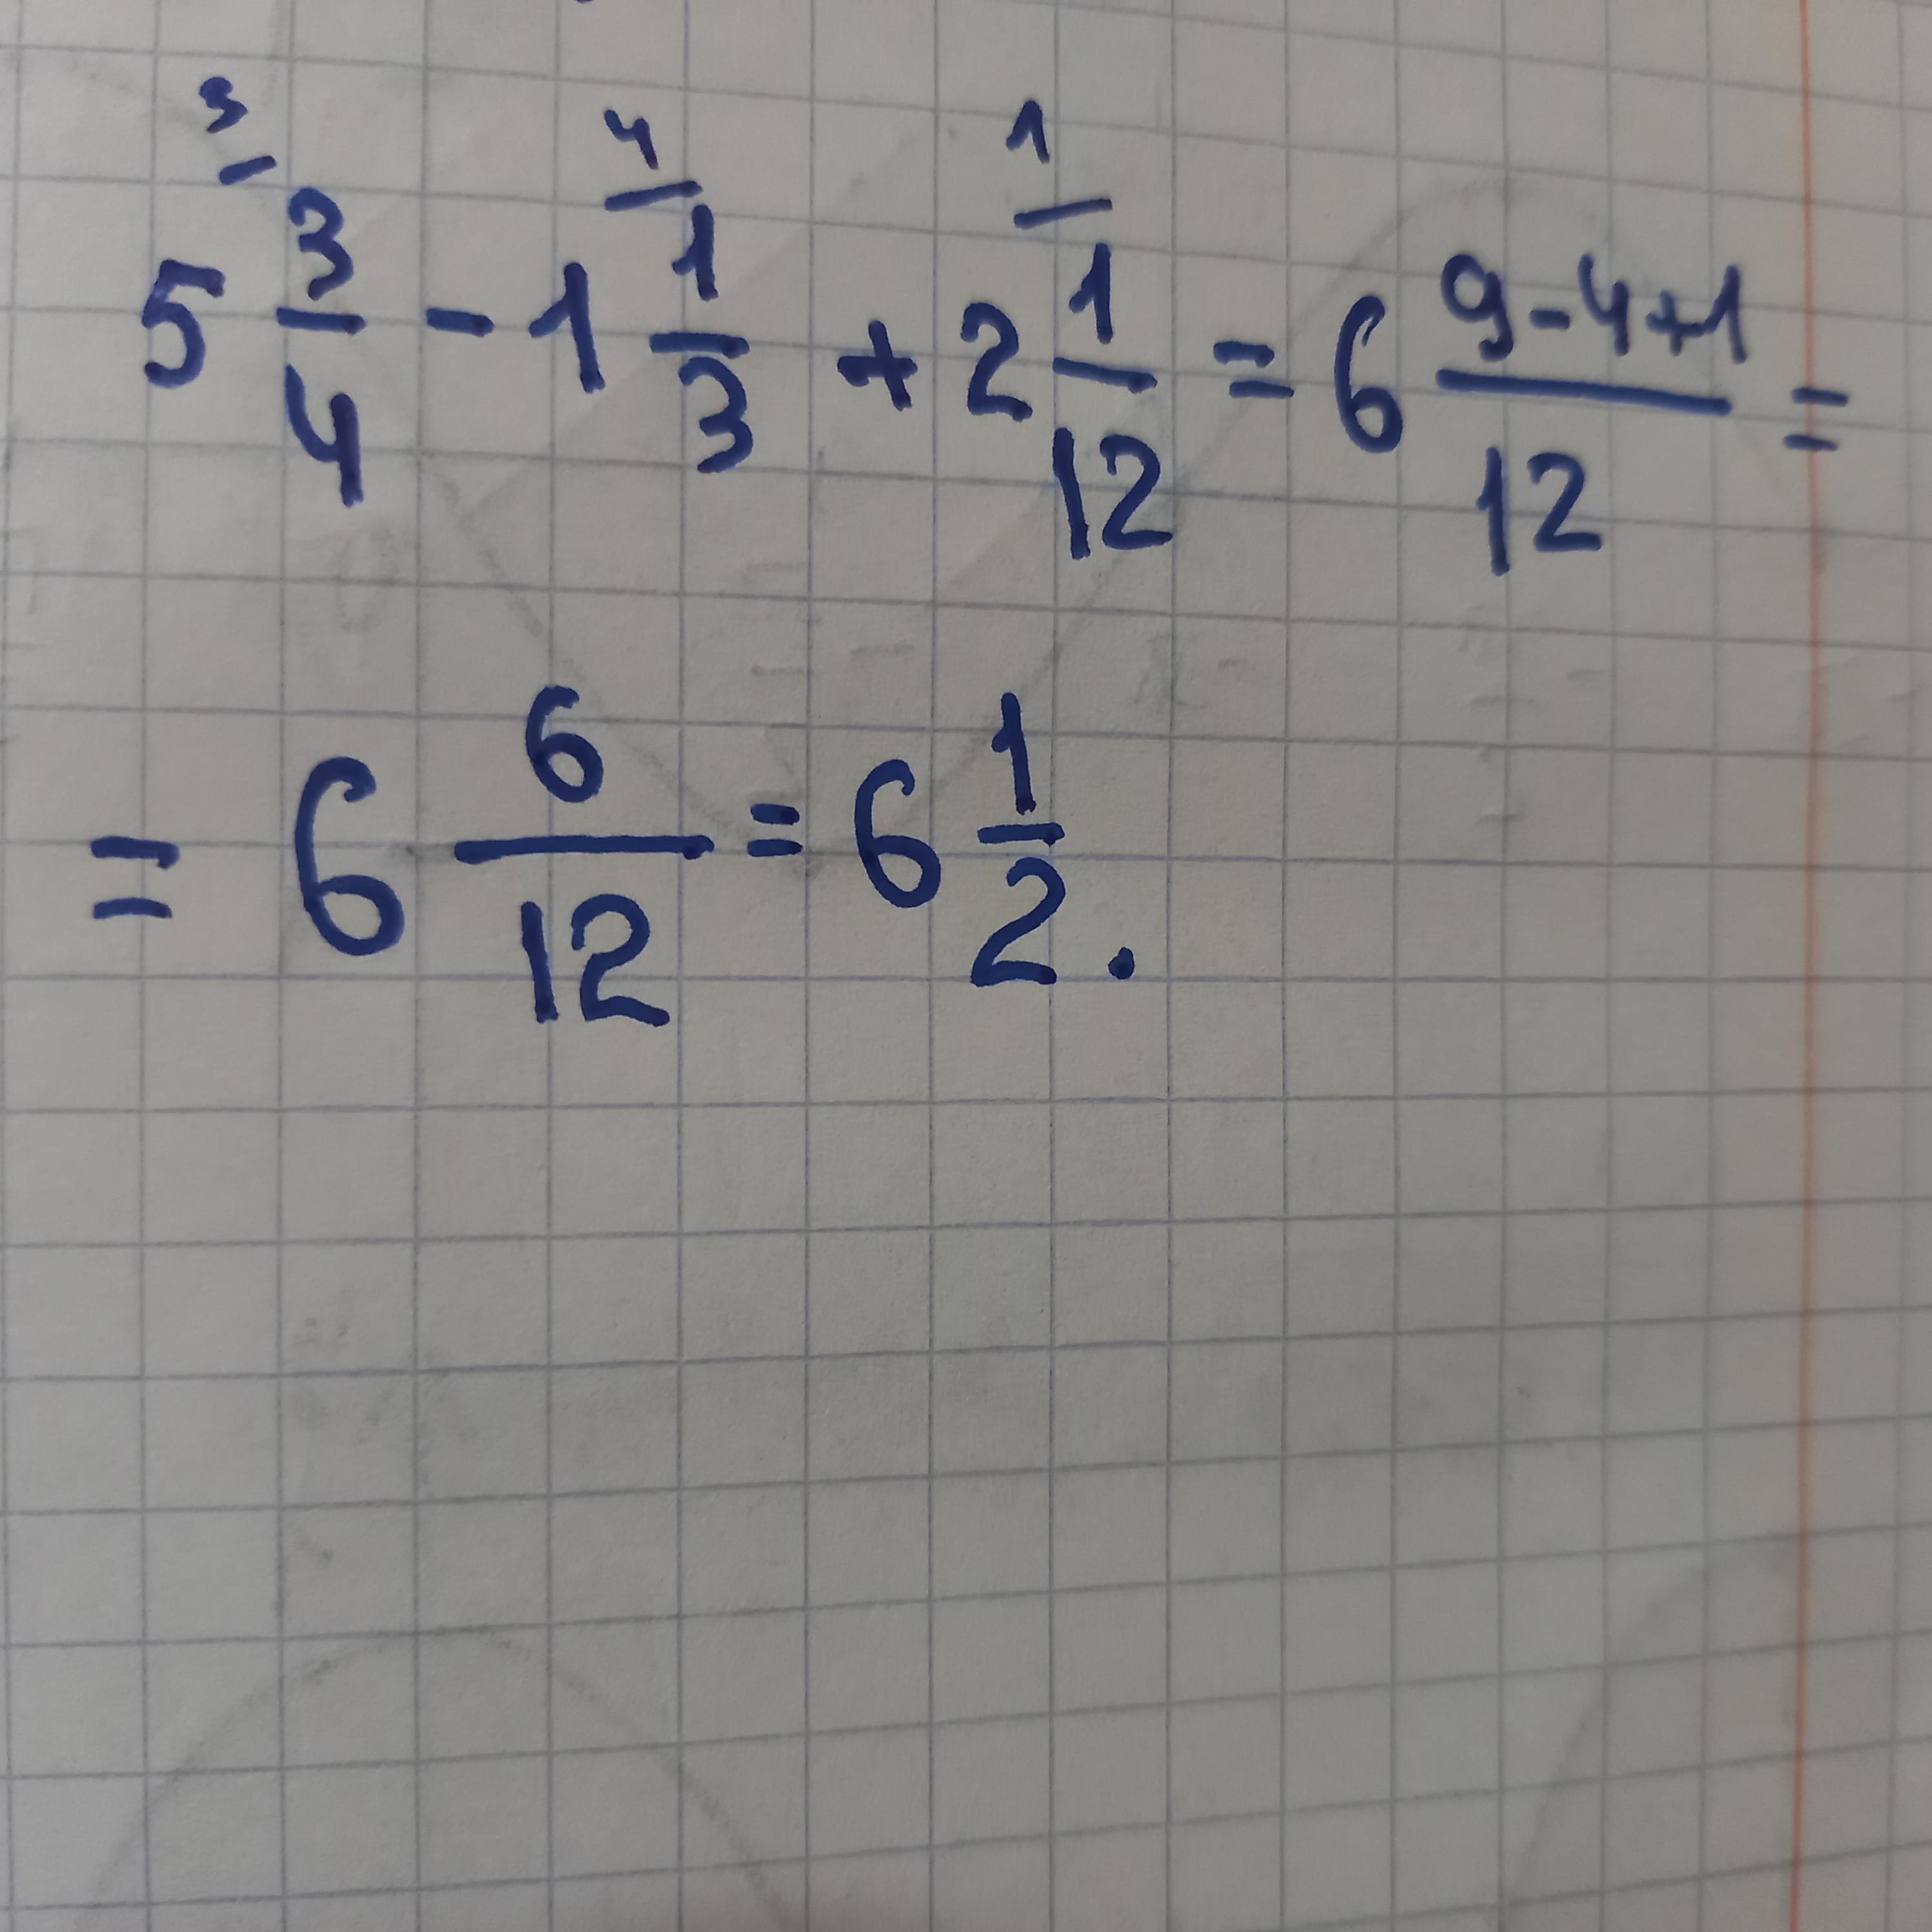 3 4 1
5 3/4 - 1 1/3 + 2 1/12 = 6 9-4+1/12 =
= 6 6/12 = 6 1/2.